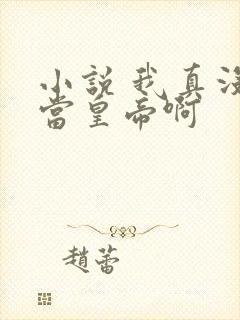 小說我真沒
當皇帝啊
趙蕾